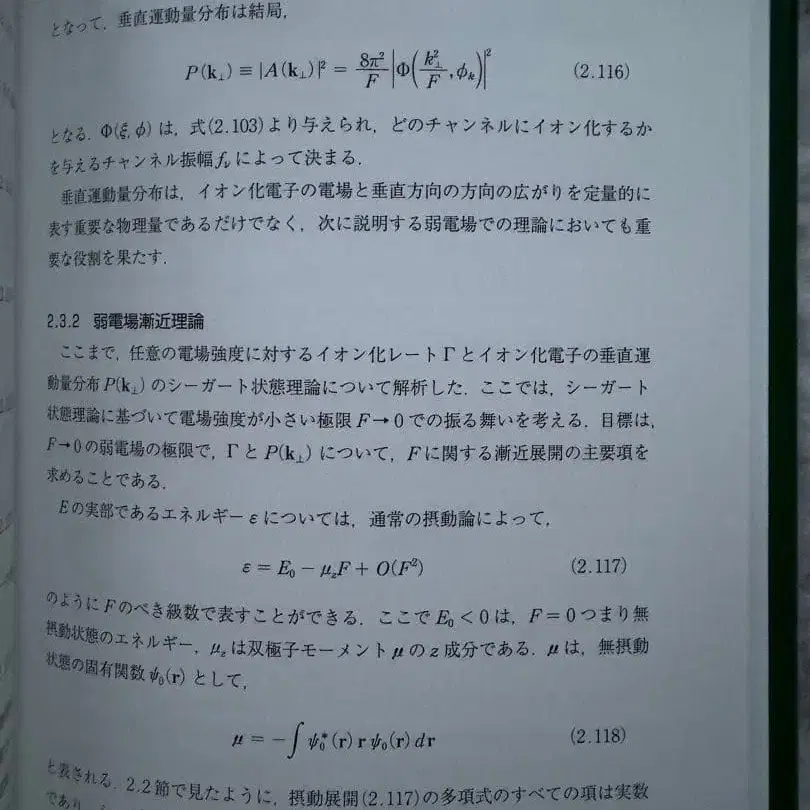 となって，垂直運動量分布は結局，
P(k⊥) ≡ |A(k⊥)|² = 8π²/F |Φ(k⊥²/F, ϕₖ)|² (2.116)
となる．Φ(ξ, ϕ) は，式(2.103)より与えられ，どのチャンネルにイオン化するか
を与えるチャンネル振幅 fν によって決まる．
垂直運動量分布は，イオン化電子の電場と垂直方向の方向の広がりを定量的に
表す重要な物理量であるだけでなく，次に説明する弱電場での理論においても重
要な役割を果たす．
2.3.2 弱電場漸近理論
ここまで，任意の電場強度に対するイオン化レート Γ とイオン化電子の垂直運
動量分布 P(k⊥) のシーガート状態理論について解析した．ここでは，シーガート
状態理論に基づいて電場強度が小さい極限 F→0 での振る舞いを考える．目標は，
F→0 の弱電場の極限で，Γ と P(k⊥) について，F に関する漸近展開の主要項を
求めることである．
E の実部であるエネルギー ε については，通常の摂動論によって，
ε = E₀ − μzF + O(F²) (2.117)
のように F のべき級数で表すことができる．ここで E₀ < 0 は，F = 0 つまり無
摂動状態のエネルギー，μz は双極子モーメント μ の z 成分である．μ は，無摂動
状態の固有関数 ψ₀(r) として，
μ = −∫ ψ₀*(r) r ψ₀(r) dr (2.118)
と表される．2.2 節で見たように，摂動展開(2.117)の多項式のすべての項は実数
であり，